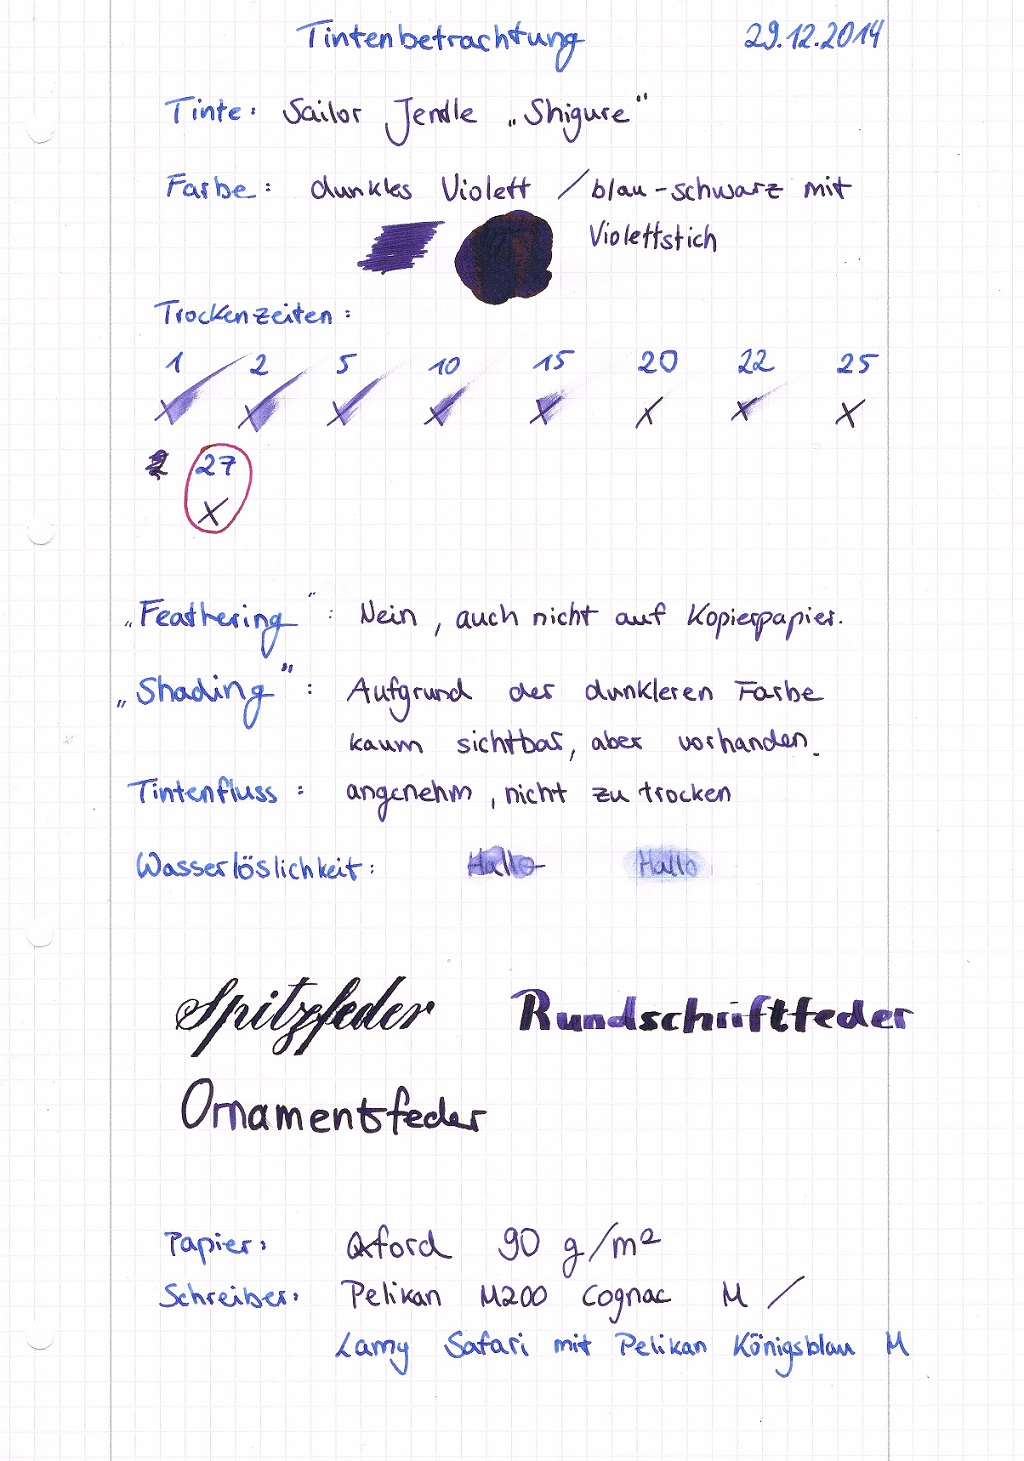 Tintenbetrachtung 29.12.2014
Tinte: Sailor Jentle „Shigure“
Farbe: dunkles Violett / blau-schwarz mit
Violettstich
Trockenzeiten:
1 2 5 10 15 20 22 25
x x x x x x x x
27
x
„Feathering“: Nein, auch nicht auf Kopierpapier.
„Shading“: Aufgrund der dunkleren Farbe
kaum sichtbar, aber vorhanden.
Tintenfluss: angenehm, nicht zu trocken
Wasserlöslichkeit: Hallo Hallo
Spitzfeder Rundschriftfeder
Ornamentsfeder
Papier: Oxford 90 g/m²
Schreiber: Pelikan M200 Cognac M /
Lamy Safari mit Pelikan Königsblau M